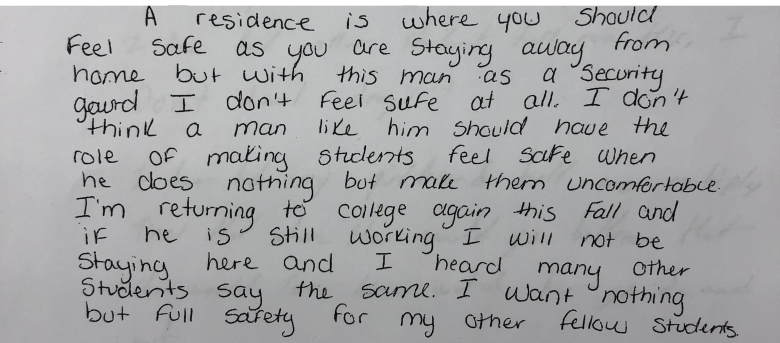 A residence is where you should
feel safe as you are staying away from
home but with this man as a security
gaurd I don't feel safe at all. I don't
think a man like him should have the
role of making students feel safe when
he does nothing but make them uncomfortable.
I'm returning to college again this fall and
if he is still working I will not be
staying here and I heard many other
students say the same. I want nothing
but full safety for my other fellow students.